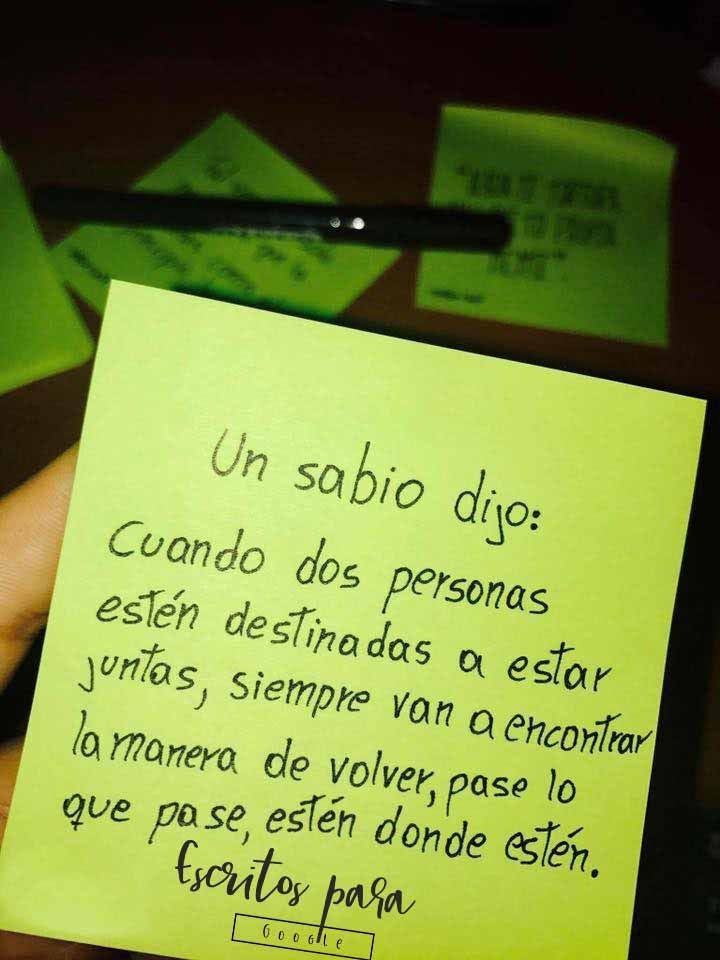 Un sabio dijo:
Cuando dos personas
estén destinadas a estar
juntas, siempre van a encontrar
la manera de volver, pase lo
que pase, estén donde estén.
Escritos para
Google